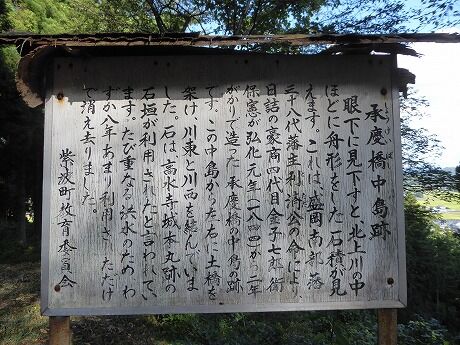 承慶橋中島跡
しょうけいばし
眼下に見下すと、北上川の中
ほどに舟形をした石積が見
えます。これは、盛岡南部藩
三十八代藩主利済公の命により、
日詰の豪商四代目金子七郎衛
保憲が弘化元年(一八四四)から二年
がかりで造った承慶橋の中島の跡
です。この中島から左右に土橋を
架け、川東と川西を結んでいま
した。石は高水寺城本丸跡の
石垣が利用されたと言われてい
ます。たび重なる洪水のため、わ
ずか八年あまり利用されただけ
で消え去りました。
紫波町教育委員会